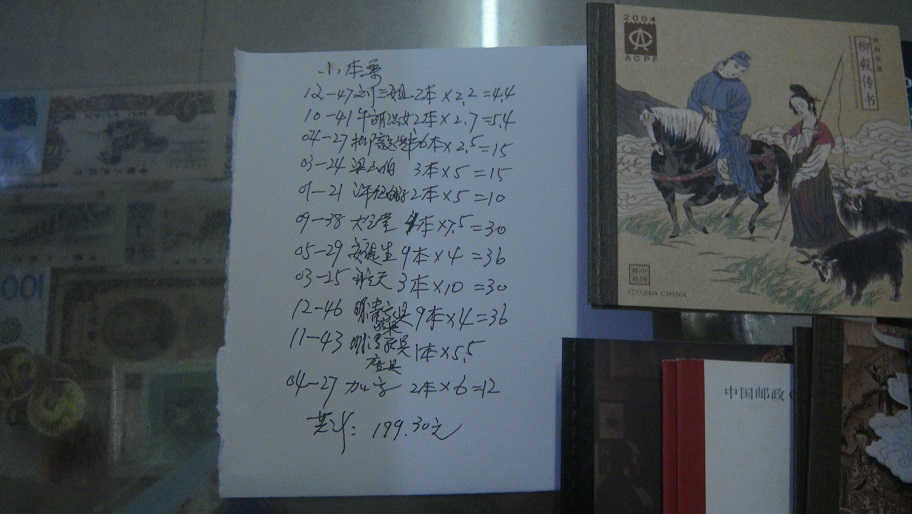 小本票
12-47 刘三姐 2本×2.2=4.4
10-41 牛郎织女 2本×2.7=5.4
04-27 柳毅传书 6本×2.5=15
03-24 梁山伯 3本×5=15
01-21 许仙 2本×5=10
09-38 大学堂 4本×7.5=30
05-29 安徒生 9本×4=36
03-25 航天 3本×10=30
12-46 明清家具 9本×4=36
承具
11-43 明清家具 1本×5.5
座具
04-27 加字 2本×6=12
共计:199.30元
2004
ACPF
民间传说
柳毅传书
中国邮政
2004 CHINA
中国邮政
100